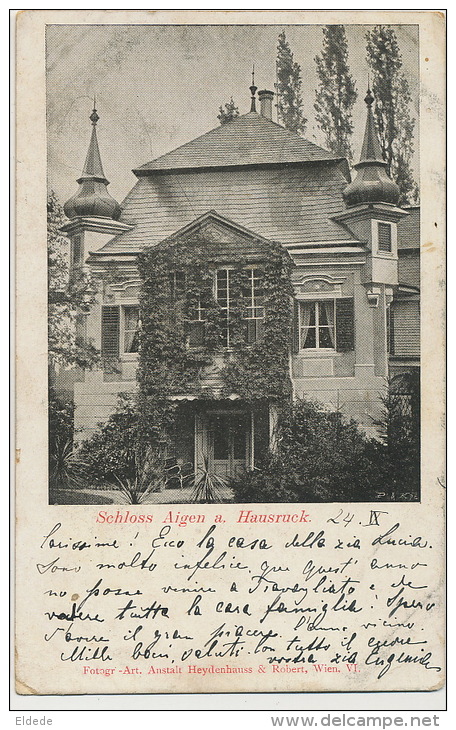 Schloss Aigen a. Hausruck. 24. IX
Carissime! Ecco la casa della zia Lucia.
Sono molto infelice, que quest' anno
no posse venire a Travagliato e de
vedere tutta la cara famiglia! Spero
d'avere il gran piacere l'anno vicino
Mille baci, saluti con tutto il cuore
vostra zia Eugenia
Fotogr.-Art. Anstalt Heydenhauss & Robert, Wien. VI.
Eldede
http://www.delcampe.net